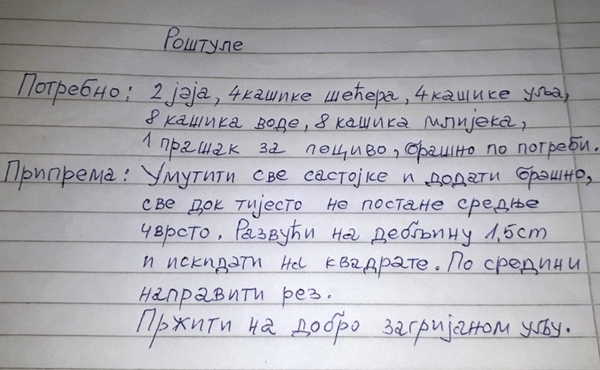 Роштуле
Потребно: 2 јаја, 4 кашике шећера, 4 кашике уља,
8 кашика воде, 8 кашика млијека,
1 прашак за пециво, брашно по потреби.
Припрема: Умутити све састојке и додати брашно,
све док тијесто не постане средње
чврсто. Развући на дебљину 1,5cm
и искидати на квадрате. По средини
направити рез.
Пржити на добро загријаном уљу.